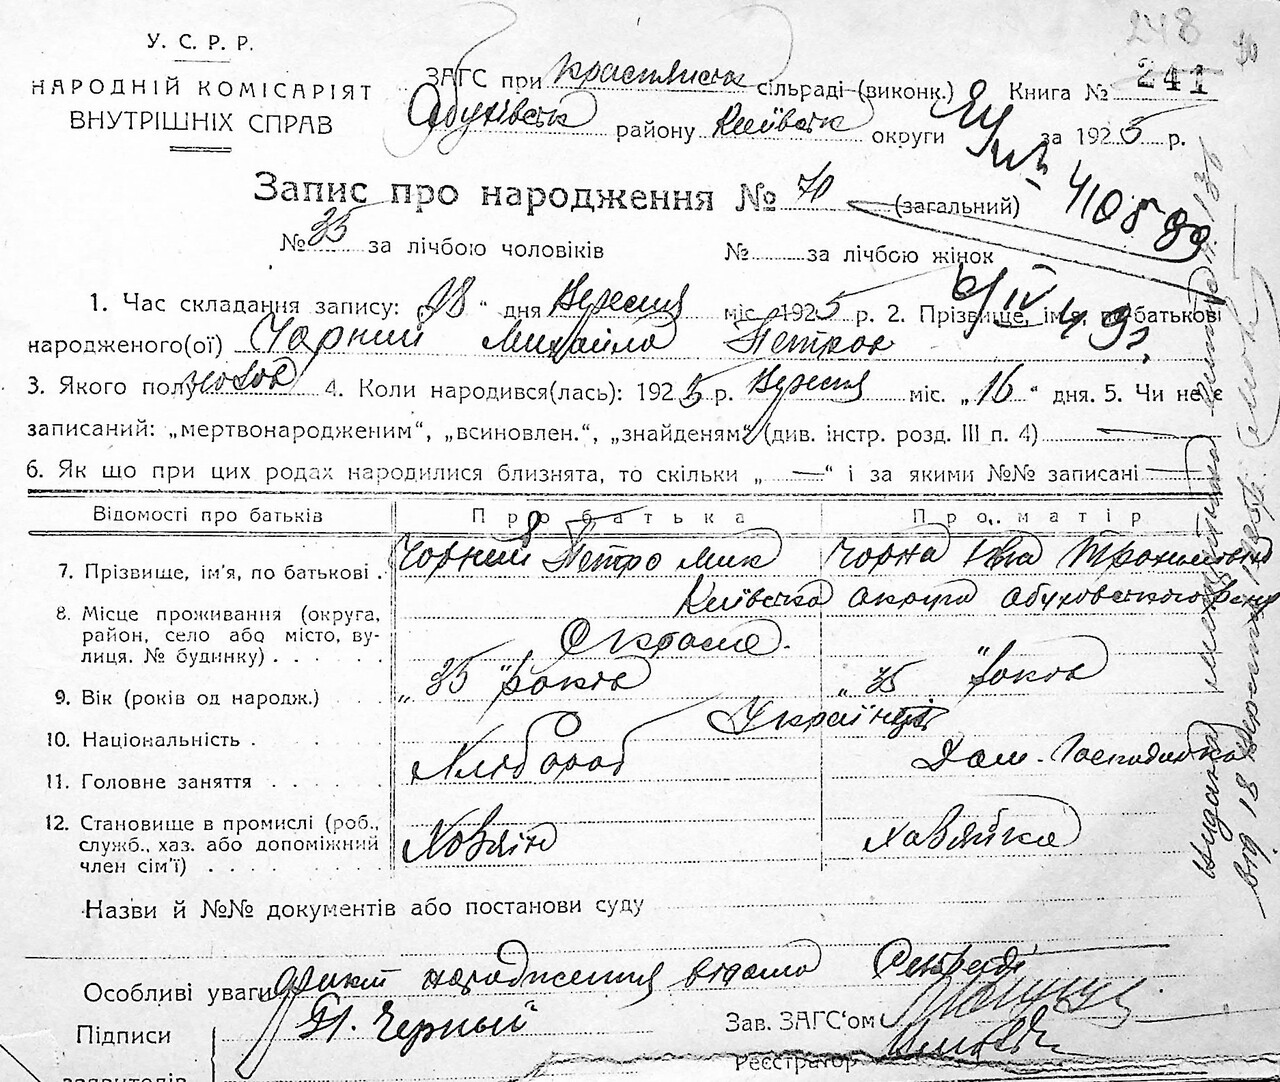 248
У. С. Р. Р.
НАРОДНІЙ КОМІСАРІЯТ
ВНУТРІШНІХ СПРАВ
ЗАГС при сільраді (виконк.) Книга № 241
району Київськ округи за 1925 р.
Запис про народження № 70 (загальний)
410589
№ 35 за лічбою чоловіків № за лічбою жінок
6/IV 49г.
1. Час складання запису: „18“ дня Вересня міс. 1925 р. 2. Прізвище, ім'я, по батькові
народженого(ої) Чорний Михайло Петров
3. Якого полу чолов 4. Коли народився(лась): 1925 р. Вересня міс. „16“ дня. 5. Чи не є
записаний: „мертвонародженим“, „всиновлен.“, „знайденям“ (див. інстр. розд. III п. 4)
6. Як що при цих родах народилися близнята, то скільки „—“ і за якими №№ записані
Відомості про батьків Про батька Про матір
7. Прізвище, ім'я, по батькові . Чорний Петро Мик Чорна
8. Місце проживання (округа, Київська округа Обуховського
район, село або місто, ву-
лиця. № будинку) . . . . . .
9. Вік (років од народж.) . . . „35“ років „35“ років
10. Національність . Українці
11. Головне заняття . . . . . . Хлібороб Дом. Господарка
12. Становище в промислі (роб., Хазяїн Хазяйка
служб., хаз. або допоміжний
член сім'ї) . . . . . . . . .
Назви й №№ документів або постанови суду
Особливі уваги народження відомо
Підписи П. Черный Зав. ЗАГС'ом
Реєстратор
заявителів
Видана
від 18 Вересня 1925 р.